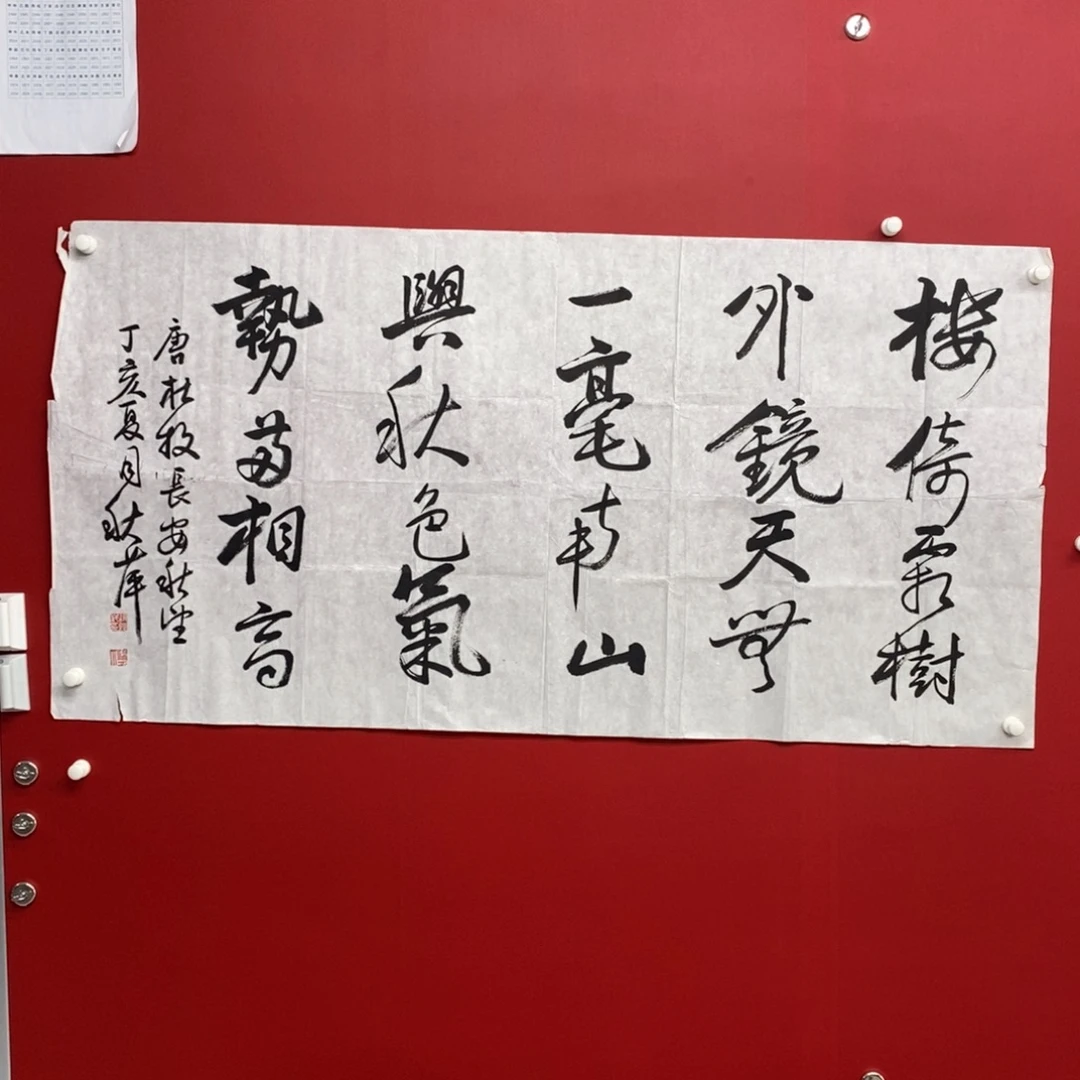 樓倚霜樹
外鏡天無
一毫南山
與秋色氣
勢兩相高
唐杜牧長安秋望
丁亥夏月秋萍